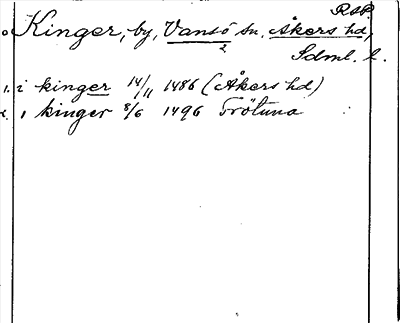 RSP.
Kinger, by, Vansö sn. Åkers hd,
Sdml. l.
1. i kinger 14/11 1486 (Åkers hd)
2. i kinger 8/6 1496 Trötuna